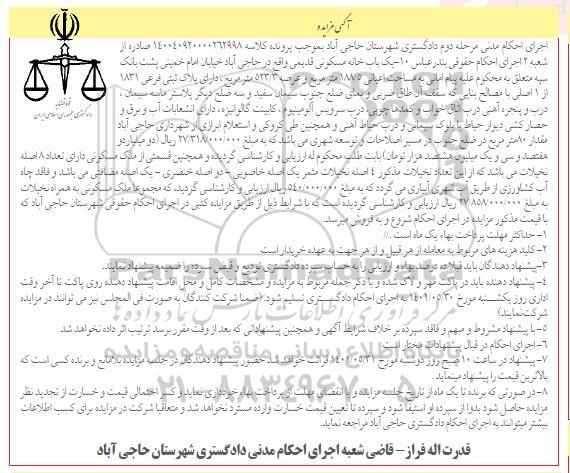 آگهی مزایده
قوه قضائیه
دادگستری جمهوری اسلامی ایران
اجرای احکام مدنی مرحله دوم دادگستری شهرستان حاجی آباد بموجب پرونده کلاسه ۱۴۰۰۴۰۹۲۰۰۰۰۲۶۲۹۹۸ صادره از
شعبه ۲ اجرای احکام حقوقی بندرعباس ۱۰-یک باب خانه مسکونی قدیمی واقع در حاجی آباد خیابان امام خمینی پشت بانک
سپه متعلق به محکوم علیه پیام امانی به مساحت اعیانی ۱۸۸/۵ متر مربع و عرصه ۵۲۳/۳ متر مربع ، دارای پلاک ثبتی فرعی ۱۸۳۱
از ۱ اصلی با مصالح بنایی که سقف آن طاق ضربی و نمای ضلع جنوب سیمان سفید و سه ضلع دیگر پلاستر ماسه سیمان ،
درب و پنجره آهنی درب اتاق خواب و کمدها چوبی، درب سرویس آلومینیوم ، کابینت گالوانیزه ، دارای انشعابات آب و برق و
حصار کشی دیوار حیاط با بلوک سیمانی و درب حیاط آهنی و همچنین طی کروکی و استعلام ابرازی از شهرداری حاجی آباد
مقدار ۸۰متر مربع در ضلع جنوب در مسیر اصلاحات و توسعه شهری می باشد که به مبلغ ۲۷/۳۱۸/۰۰۰/۰۰۰ ریال (دو میلیارد و
هفتصد و سی و یک میلیون هشتصد هزار تومان) بابت طلب محکوم له ارزیابی و کارشناسی گردیده و همچنین قسمتی از ملک مسکونی دارای تعداد ۸ اصله
نخیلات می باشد که از این تعداد نخیلات مذکور ۴ اصله نخیلات مثمر یک اصله خاصویی – دو اصله خنضری – یک اصله مضافتی می باشد و فاقد چاه
آب کشاورزی از طریق آب شهری آبیاری می گردد که به مبلغ ۵۴۰/۰۰۰/۰۰۰ ریال ارزیابی و کارشناسی گردید، که مجموعا ملک مسکونی به همراه نخیلات
به مبلغ ۲۷/۸۵۸/۰۰۰/۰۰۰ ریال ارزیابی و کارشناسی گردیده است که با شرایط ذیل از طریق مزایده کتبی در اجرای احکام حقوقی شهرستان حاجی آباد که
با قیمت مذکور مزایده در اجرای احکام شروع و به فروش میرسد.
۱–حداکثر مهلت پرداخت بهاء یک ماه است .//
۲–کلیه هزینه های مربوط به معامله از هر قبیل و از هر جهت به عهده خریدار است
۳–پیشنهاد دهندگان باید قبلا ده درصد بهاء و ارزیابی را به حساب سپرده دادگستری تودیع و قبض سپرده را ضمیمه پیشنهاد نمایند.
۴–پیشنهاد دهنده باید در پاکت مهر و لاک شده و با ذکر جمله مربوط به مزایده و مشخصات کامل و محل اقامت پیشنهاد دهنده روی پاکت تا آخر وقت
اداری روز یکشنبه مورخ ۱۴۰۱/۰۵/۳۰ به اجرای احکام دادگستری تسلیم شود. (ضمنا شرکت کنندگان به صورت فی المجلس نیز می توانند در مزایده
شرکت نمایند)
۵–با پیشنهاد مشروط و مبهم و فاقد سپرده بر خلاف شرایط آگهی و همچنین پیشنهاداتی که بعد از وقت مقرر برسد ترتیب اثر داده نخواهد شد
۶–اجرای احکام در قبال پیشنهادات مختار است
۷–پیشنهاد در ساعت ۱۰ صبح روز دوشنبه مورخ ۱۴۰۱/۰۵/۳۱ قرائت خواهد شد حضور پیشنهاد دهندگان در جلسه مزایده بلامانع و برنده کسی است که
بالاترین قیمت را پیشنهاد مینماید.
۸–در صورتی که برنده تا یک ماه از تاریخ جلسه مزایده و یا انقضای مهلت از پرداخت بهاء خودداری نماید و کسر احتمالی قیمت و خسارت از تجدید نظر
مزایده حاصل شود بدوا از سپرده او استیفا شود و سپرده تا تعیین قیمت خسارت وارده مسترد نخواهد شد و متعاقبا شرکت در مزایده برای کسب اطلاعات
بیشتر میتوانند به اجرای احکام دادگستری حاجی آباد مراجعه نماید.
قدرت اله فراز – قاضی شعبه اجرای احکام مدنی دادگستری شهرستان حاجی آباد